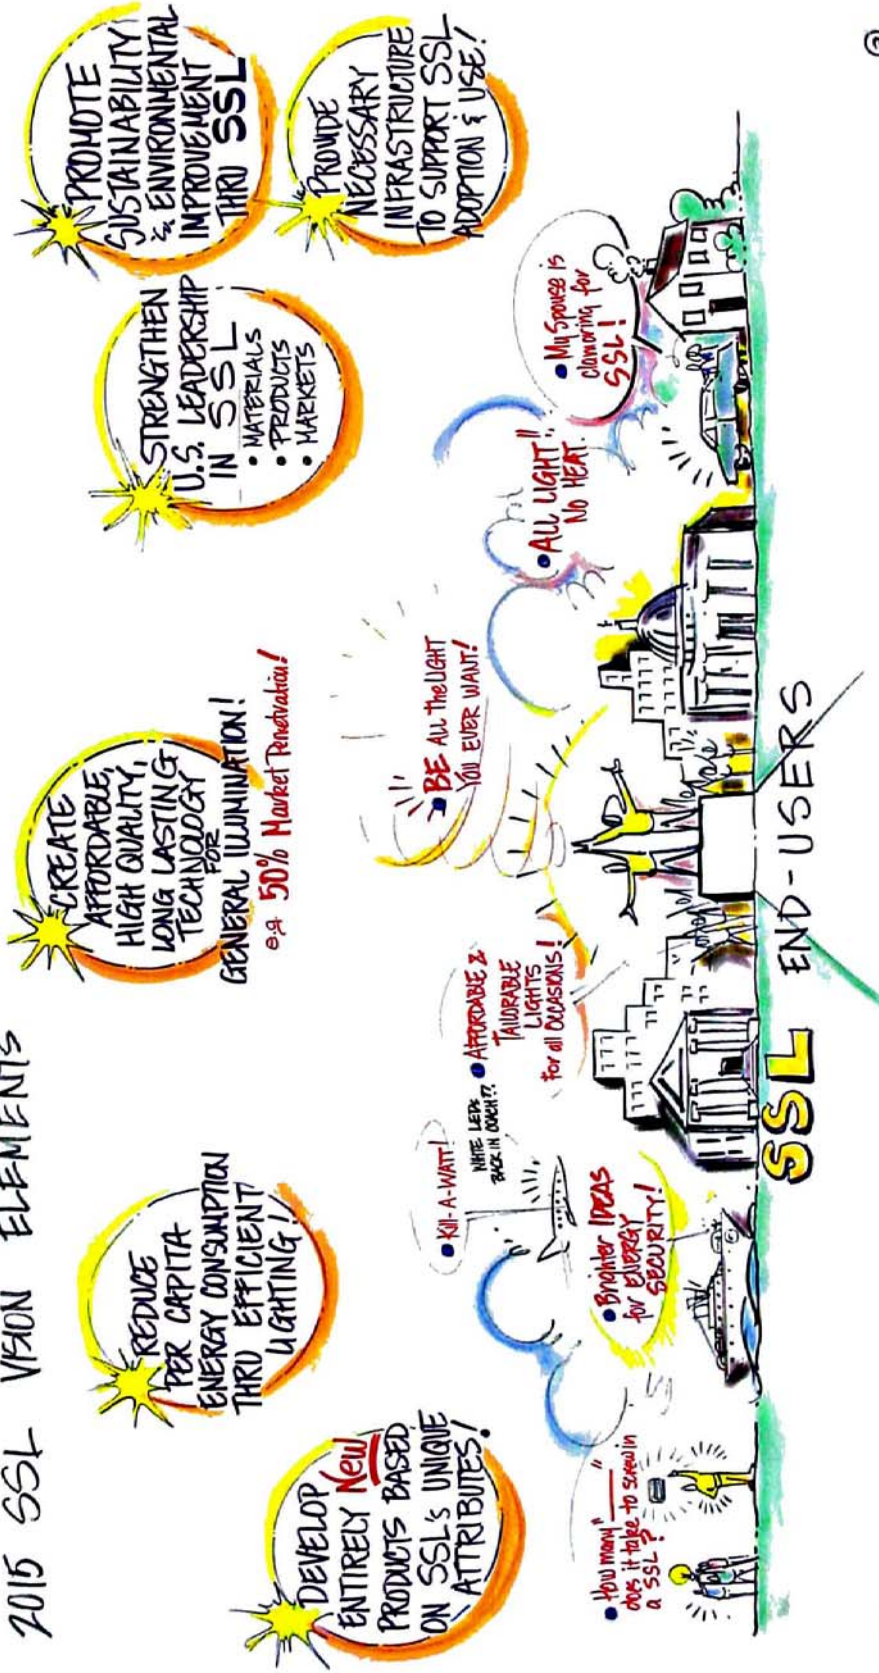 2015 SSL VISION ELEMENTS
DEVELOP
ENTIRELY New
PRODUCTS BASED
ON SSL's UNIQUE
ATTRIBUTES!
REDUCE
PER CAPITA
ENERGY CONSUMPTION
THRU EFFICIENT
LIGHTING!
CREATE
AFFORDABLE,
HIGH QUALITY,
LONG LASTING
TECHNOLOGY
FOR
GENERAL ILLUMINATION!
e.g. 50% Market Penetration!
STRENGTHEN
U.S. LEADERSHIP
IN SSL
• MATERIALS
• PRODUCTS
• MARKETS
PROMOTE
SUSTAINABILITY
& ENVIRONMENTAL
IMPROVEMENT
THRU SSL
PROVIDE
NECESSARY
INFRASTRUCTURE
TO SUPPORT SSL
ADOPTION & USE!
• How many "____"
does it take to screw in
a SSL?
• Brighter IDEAS
for ENERGY
SECURITY!
• Kill-A-WATT!
BACK IN COACH??
• AFFORDABLE &
TAILORABLE
LIGHTS
For all OCCASIONS!
• BE ALL The LIGHT
YOU EVER WANT!
• ALL LIGHT"
NO HEAT.
• My Spouse is
clamoring for
SSL!
SSL END-USERS